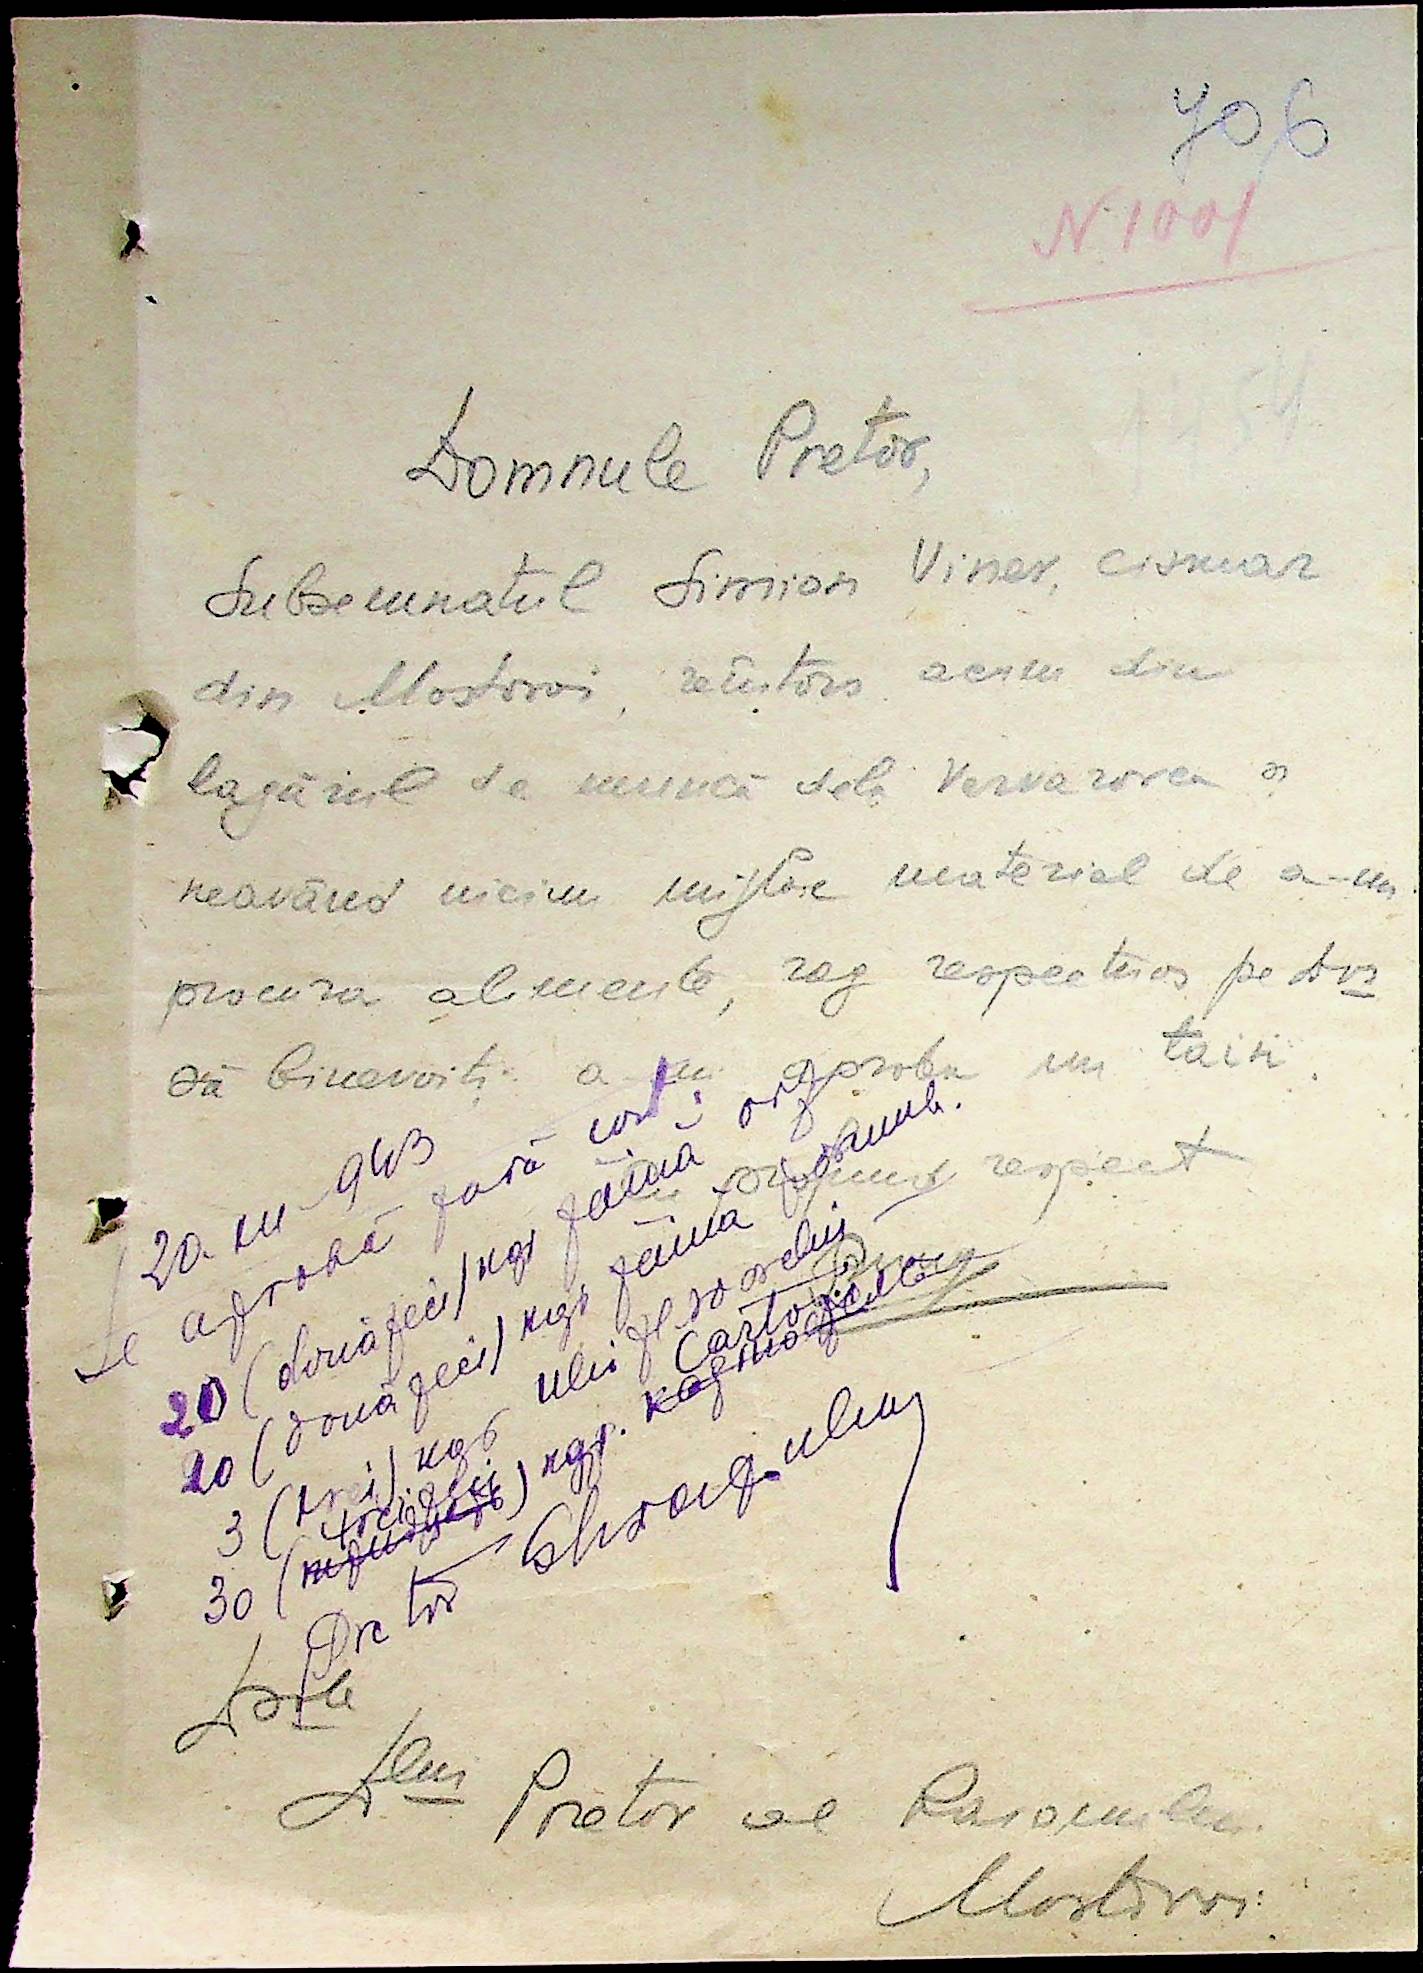 706
N 1001
1454
Domnule Pretor,
Subsemnatul Simion Viner, cismar
din Mostovoi, reîntors acum din
lagărul de muncă dela Vervarovca și
neavând niciun mijloc material de a-mi
procura alimente, rog respectuos pe Dvs
să binevoiți a-mi aproba un tain.
Cu profund respect
20. XII 943
Se aprobă fără cost:
20 (douăzeci) kgr făină orz
20 (două zeci) kgr făină porumb.
3 (trei) kgr ulei fl soarelui
treizeci Cartofi
30 ( ) kgr.
Pretor
Dsale
Dlui Pretor al Raionului
Mostovoi